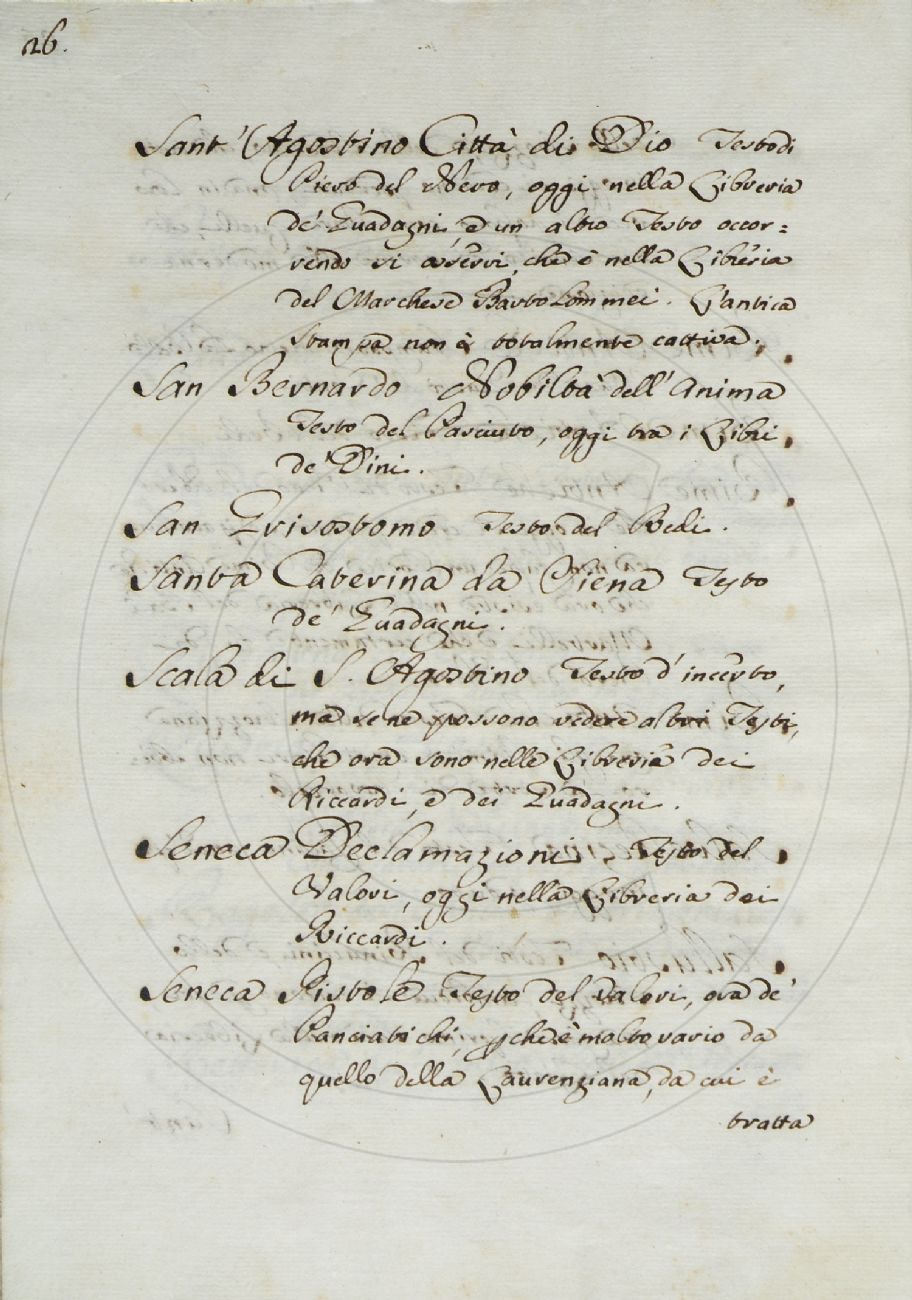 26.
Sant' Agostino Città di Dio Testo di
Piero del Nero, oggi nella Libreria
de' Guadagni, e un altro Testo occor=
rendo si osservi, che è nella Libreria
del Marchese Bartolommei. L'antica
stampa non è totalmente cattiva.
San Bernardo Nobiltà dell' Anima
Testo del Pasciuto, oggi tra i Libri
de' Dini.
San Grisostomo Testo del Redi.
Santa Caterina da Siena Testo
de' Guadagni.
Scala di S. Agostino Testo d' incerto,
ma se ne possono vedere altri Testi,
che ora sono nelle Libreria dei
Riccardi, e dei Guadagni.
Seneca Declamazioni Testo del
Valori, oggi nella Libreria dei
Riccardi.
Seneca Pistole Testo del Valori, ora de'
Panciatichi, che è molto vario da
quello della Laurenziana, da cui è
tratta